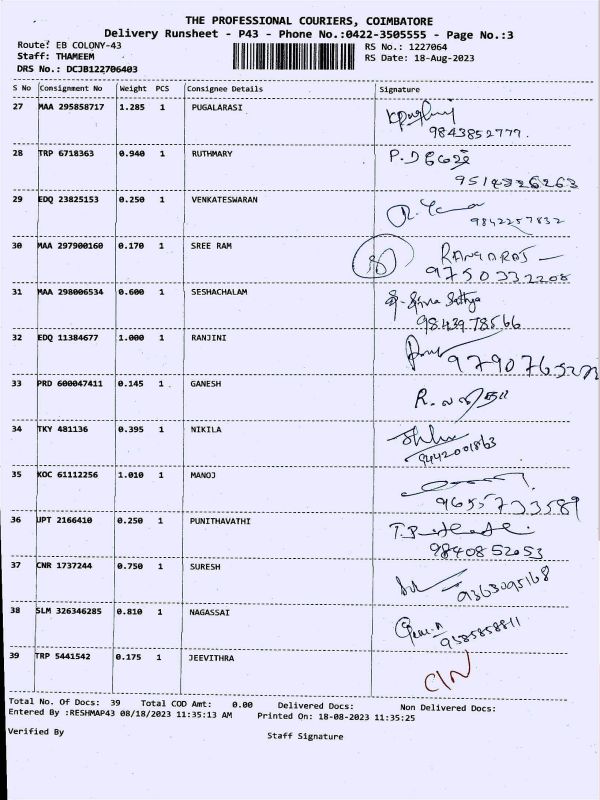 THE PROFESSIONAL COURIERS, COIMBATORE
Delivery Runsheet - P43 - Phone No.:0422-3505555 - Page No.:3
Route: EB COLONY-43 RS No.: 1227064
Staff: THAMEEM RS Date: 18-Aug-2023
DRS No.: DCJB122706403
S No Consignment No Weight PCS Consignee Details Signature
27 MAA 295858717 1.285 1 PUGALARASI
9843852777
28 TRP 6718363 0.940 1 RUTHMARY
29 EDQ 23825153 0.250 1 VENKATESWARAN
9842257832
30 MAA 297900160 0.170 1 SREE RAM RANGARAJ
9750332208
31 MAA 298006534 0.600 1 SESHACHALAM
9843978566
32 EDQ 11384677 1.000 1 RANJINI
33 PRD 600047411 0.145 1 GANESH
34 TKY 481136 0.395 1 NIKILA
9442001863
35 KOC 61112256 1.010 1 MANOJ
9655733589
36 UPT 2166410 0.250 1 PUNITHAVATHI
9840852053
37 CNR 1737244 0.750 1 SURESH
9363095168
38 SLM 326346285 0.810 1 NAGASSAI
9585858811
39 TRP 5441542 0.175 1 JEEVITHRA
Total No. Of Docs: 39 Total COD Amt: 0.00 Delivered Docs: Non Delivered Docs:
Entered By :RESHMAP43 08/18/2023 11:35:13 AM Printed On: 18-08-2023 11:35:25
Verified By Staff Signature